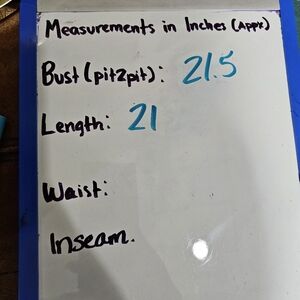 Measurements in Inches (Appx)
Bust (pit2pit): 21.5
Length: 21
Waist:
Inseam.